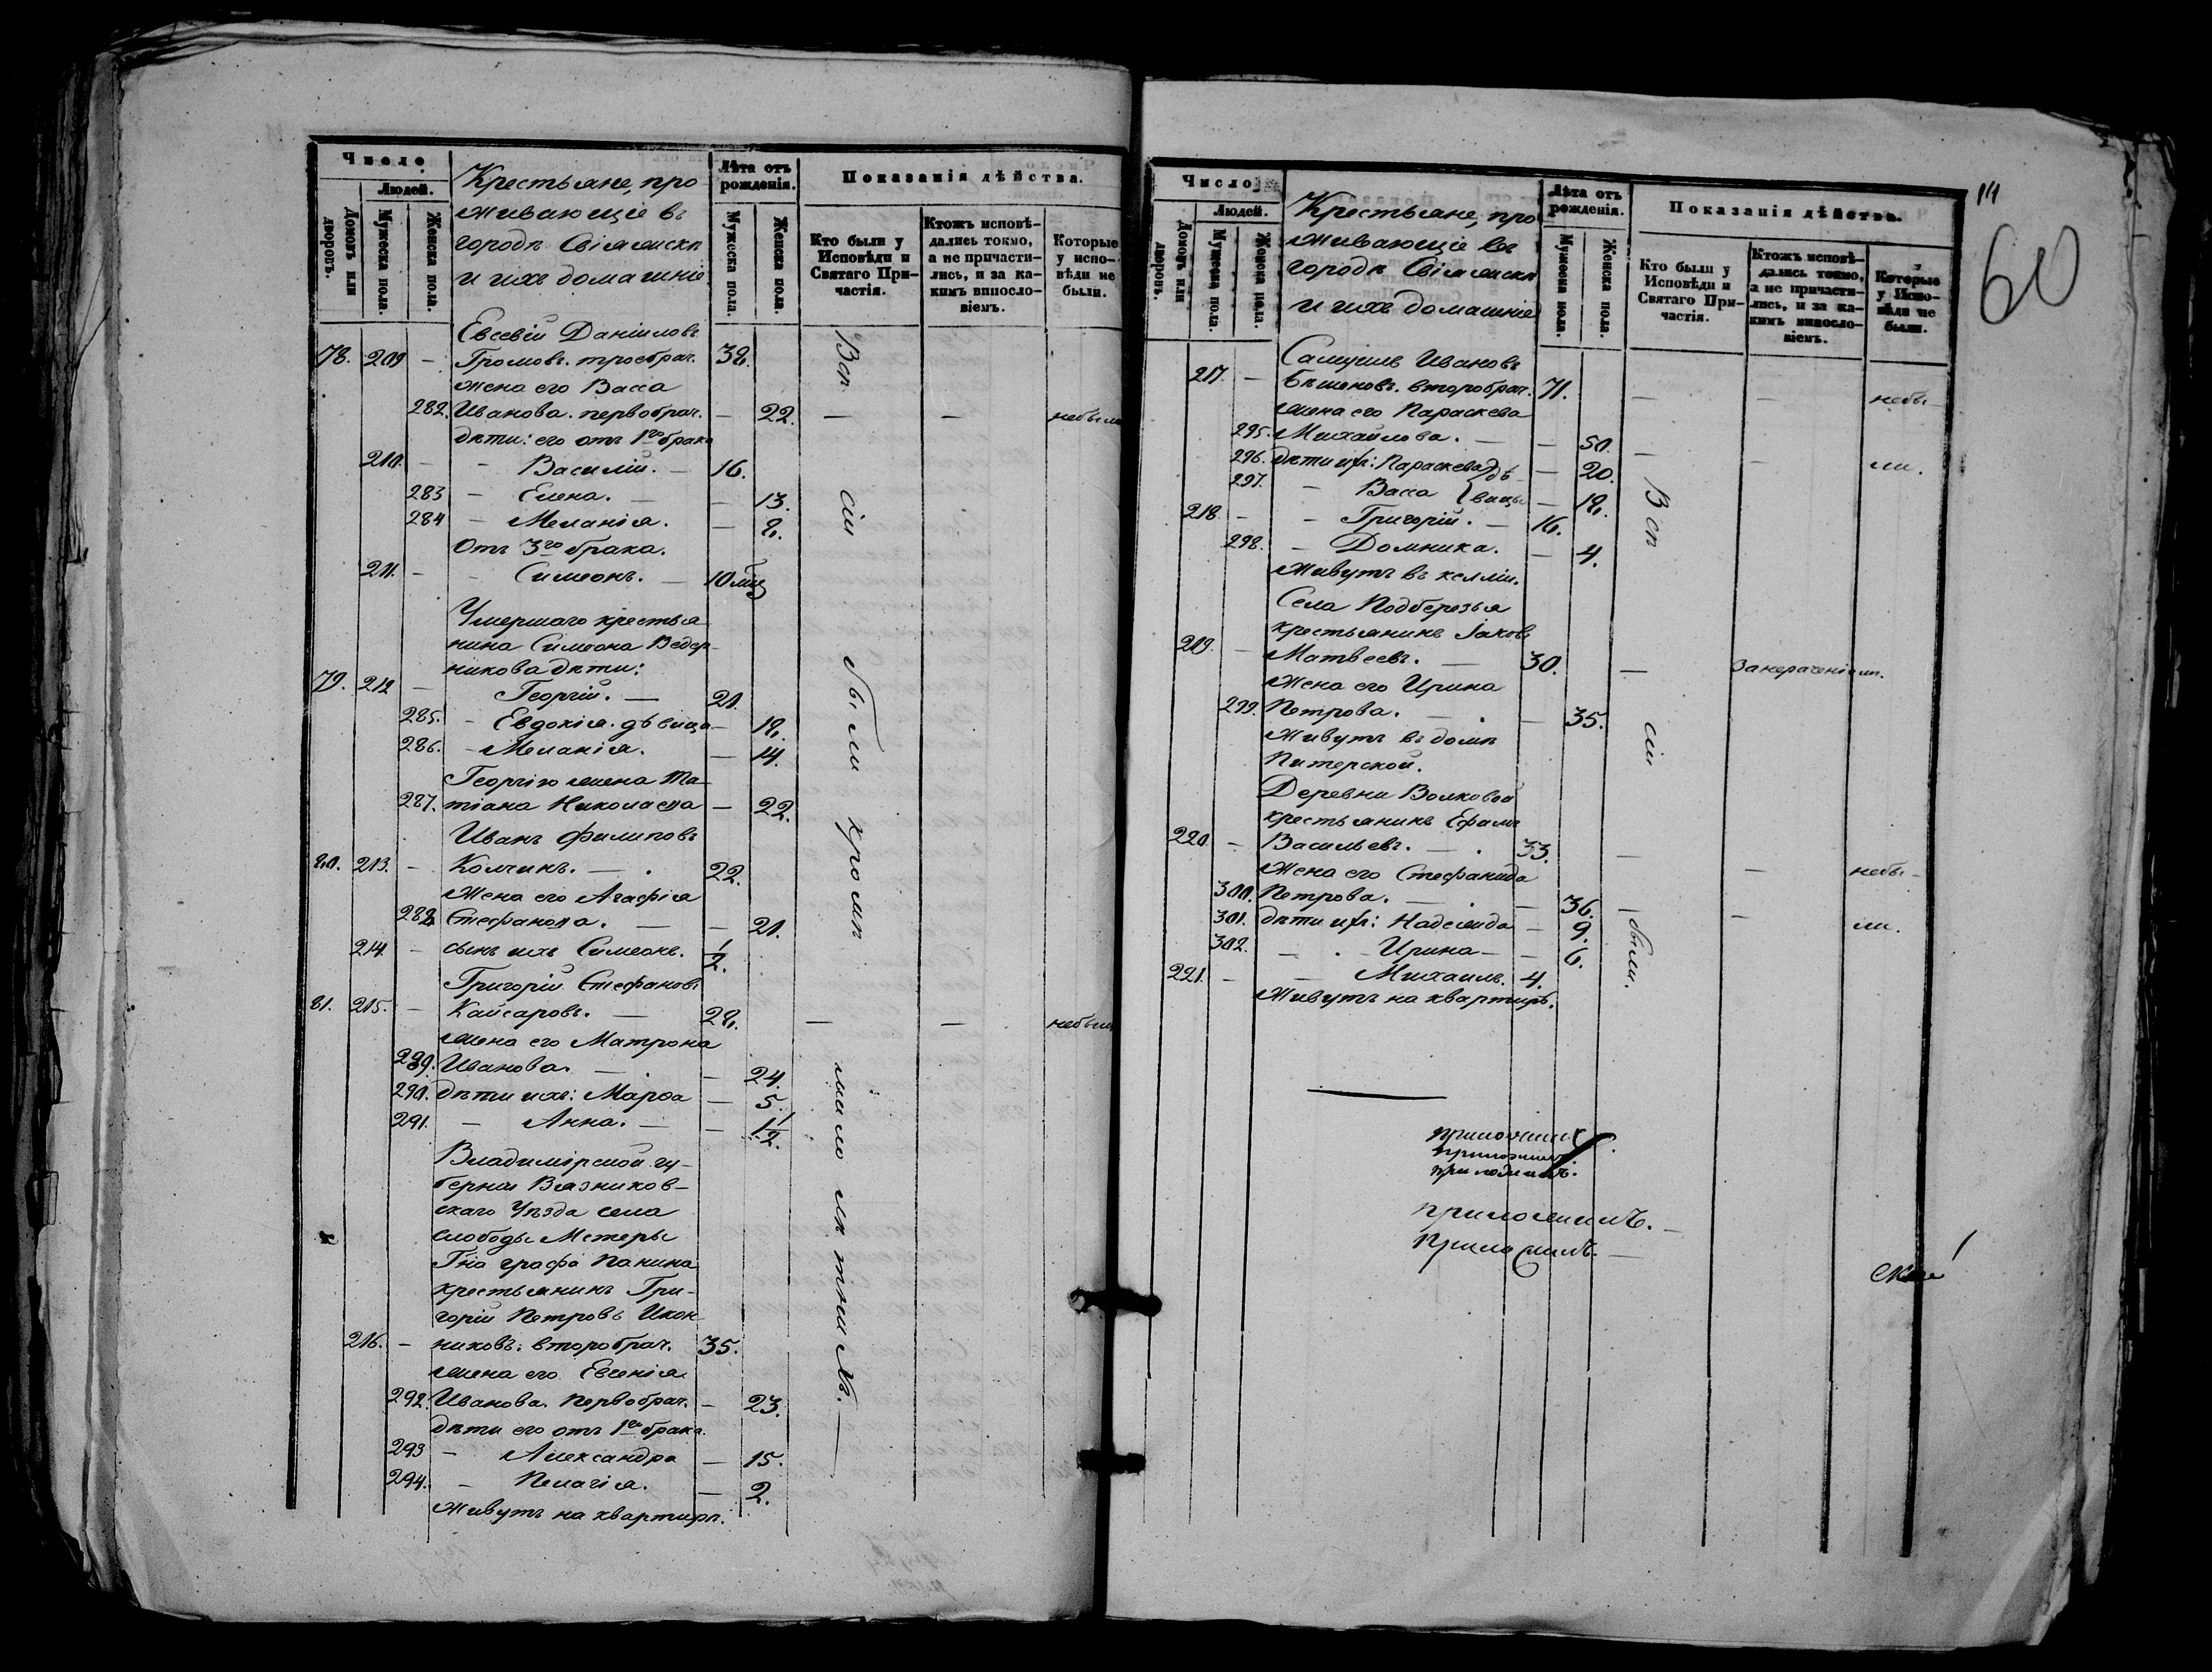 Число
Людей.
Домовъ или дворовъ.
Мужеска пола.
Женска пола.
Крестьяне, про
живающіе въ
городѣ Свіяжскѣ
и ихъ домашніе
Лѣта отъ рожденія.
Мужеска пола.
Женска пола.
Показанія дѣйства.
Кто были у Исповѣди и Святаго Причастія.
Ктожъ исповѣдались токмо, а не причастились, и за какимъ винословіемъ.
Которые у исповѣди не были.
Евсевій Даніиловъ
78. 209 — Громовъ. троебрач. 38.
жена его Васса
282. Иванова. первобрач. — 22. — — небыли
дѣти: его отъ 1го брака
210. — — Василій. — 16.
283 — Елена. — — 13.
284 — Меланія. — 8.
Отъ 3го брака.
211. — — Симеонъ. — 10 мц
Умершаго крестья
нина Симеона Ведер
никова дѣти:
79. 212 — Георгій. — 21.
285. — Евдокія. дѣвица — 18.
286. — Меланія. — 14.
Георгія жена Та
287. тіана Николаева — 22.
Иванъ Филиповъ
80. 213. — Колчинъ. — 22.
Жена его Агафія
288 Стефанова. — — 21.
214. — сынъ ихъ Симеонъ. 1/2.
Григорій Стефановъ
81. 215. — Кайсаровъ. — 28. — — небыли
жена его Матрона
289. Иванова. — — 24.
290. дѣти ихъ: Марѳа — 5.
291. — Анна. — — 1 1/2.
Владимірской гу-
берніи Вязников-
скаго Уѣзда села
слободы Мстеры
Гна графа Панина
крестьянинъ Гри-
горій Петровъ Икон
216. — никовъ. второбрач. 35.
жена его Евгенія
292. Иванова. первобрач. — 23.
дѣти его отъ 1го брака.
293 — Александра — 15.
294. — Пелагія. — 2.
Живутъ на квартирѣ.
Всѣ сіи были кромѣ
Число
Людей.
Домовъ или дворовъ.
Мужеска пола.
Женска пола.
Крестьяне, про
живающіе въ
городѣ Свіяжскѣ
и ихъ домашніе
Лѣта отъ рожденія.
Мужеска пола.
Женска пола.
Показанія дѣйства.
Кто были у Исповѣди и Святаго Причастія.
Ктожъ исповѣдались токмо, а не причастились, и за какимъ винословіемъ.
Которые у Исповѣди не были.
14
60
Самуилъ Ивановъ
217. — второбрач. 71. — — небы
жена его Параскева
295. Михайлова. — — 50. — — ли.
296. дѣти ихъ: Параскева дѣ — 20.
297. — Васса вицы — 18.
218. — — Григорій. — 16.
298. — Домника. — 4.
Живутъ въ келліи.
Села Подберезья
крестьянинъ Іаковъ
219. — Матвеевъ. — 30. — За нераченіемъ.
Жена его Ирина
299. Петрова. — — 35.
Живутъ въ домѣ
Питерской.
Деревни Волковой
крестьянинъ Ефимъ
220. — Васильевъ. — 33. — — небы
Жена его Стефанида
300. Петрова. — — 36. — — ли.
301. дѣти ихъ: Надежда — 9.
302. — Ирина — — 6.
221. — — Михаилъ. 4.
Живутъ на квартирѣ.
Всѣ сіи были.
приложилъ.